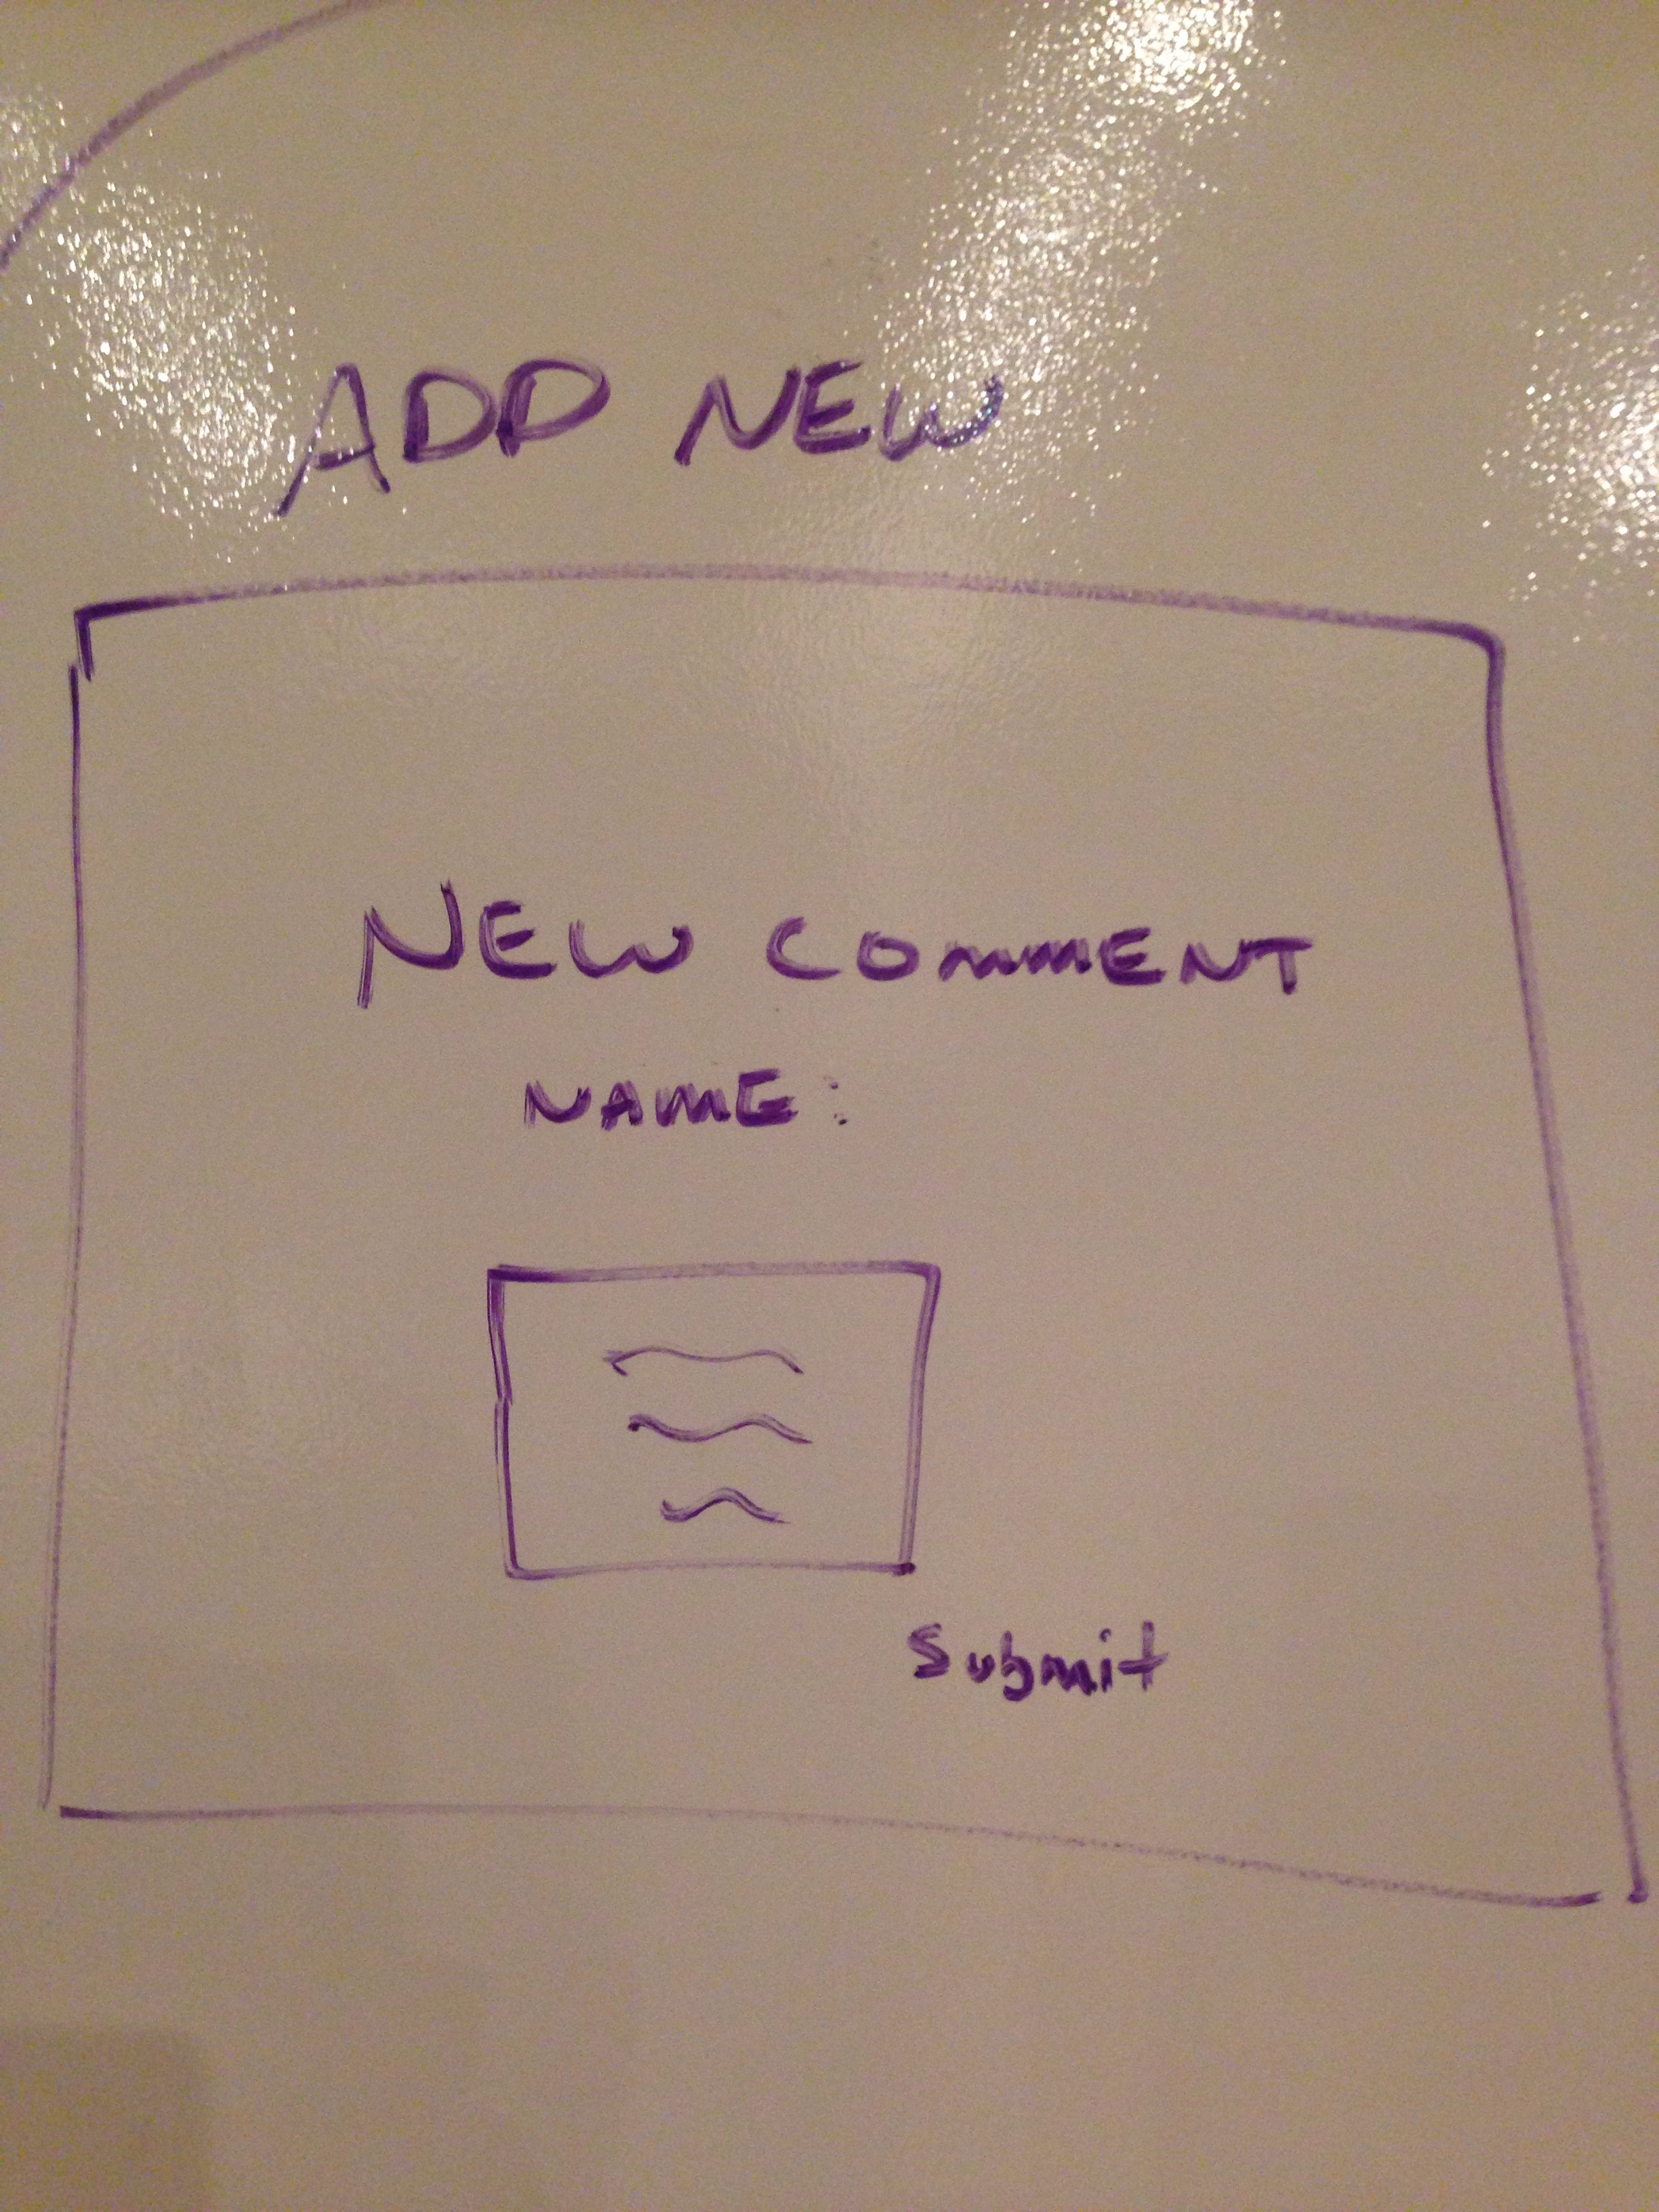 ADD NEW
NEW COMMENT
NAME:
Submit